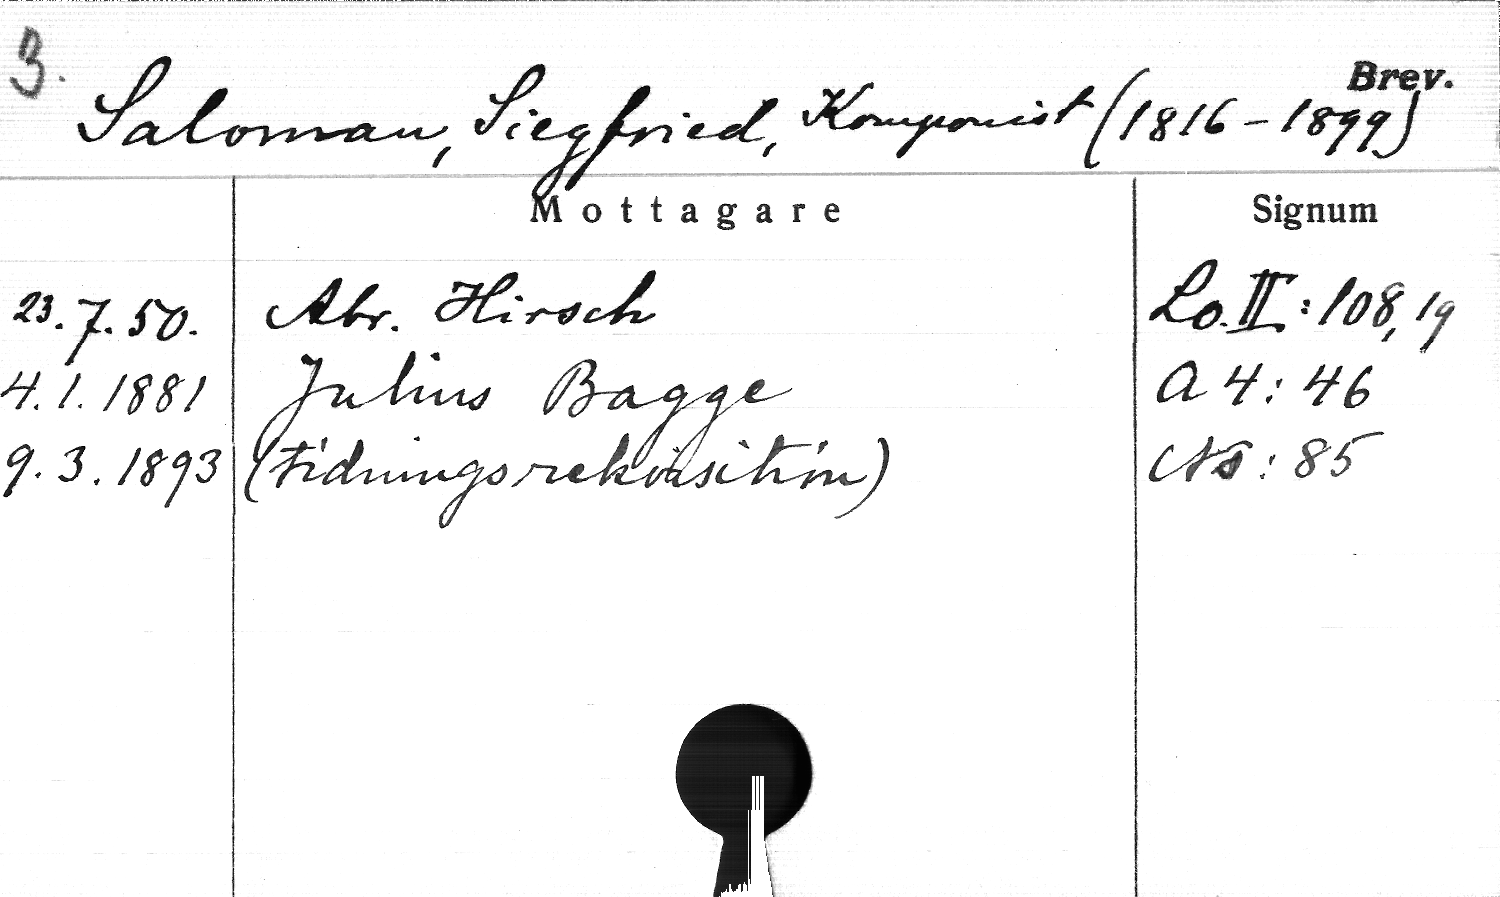 3.
Brev.
Saloman, Siegfried, Komponist (1816-1899)
Mottagare Signum
23.7.50. Abr. Hirsch Lo. II: 108, 19
4.1.1881 Julius Bagge A 4: 46
9.3.1893 (Tidningsrekvisition) NS: 85